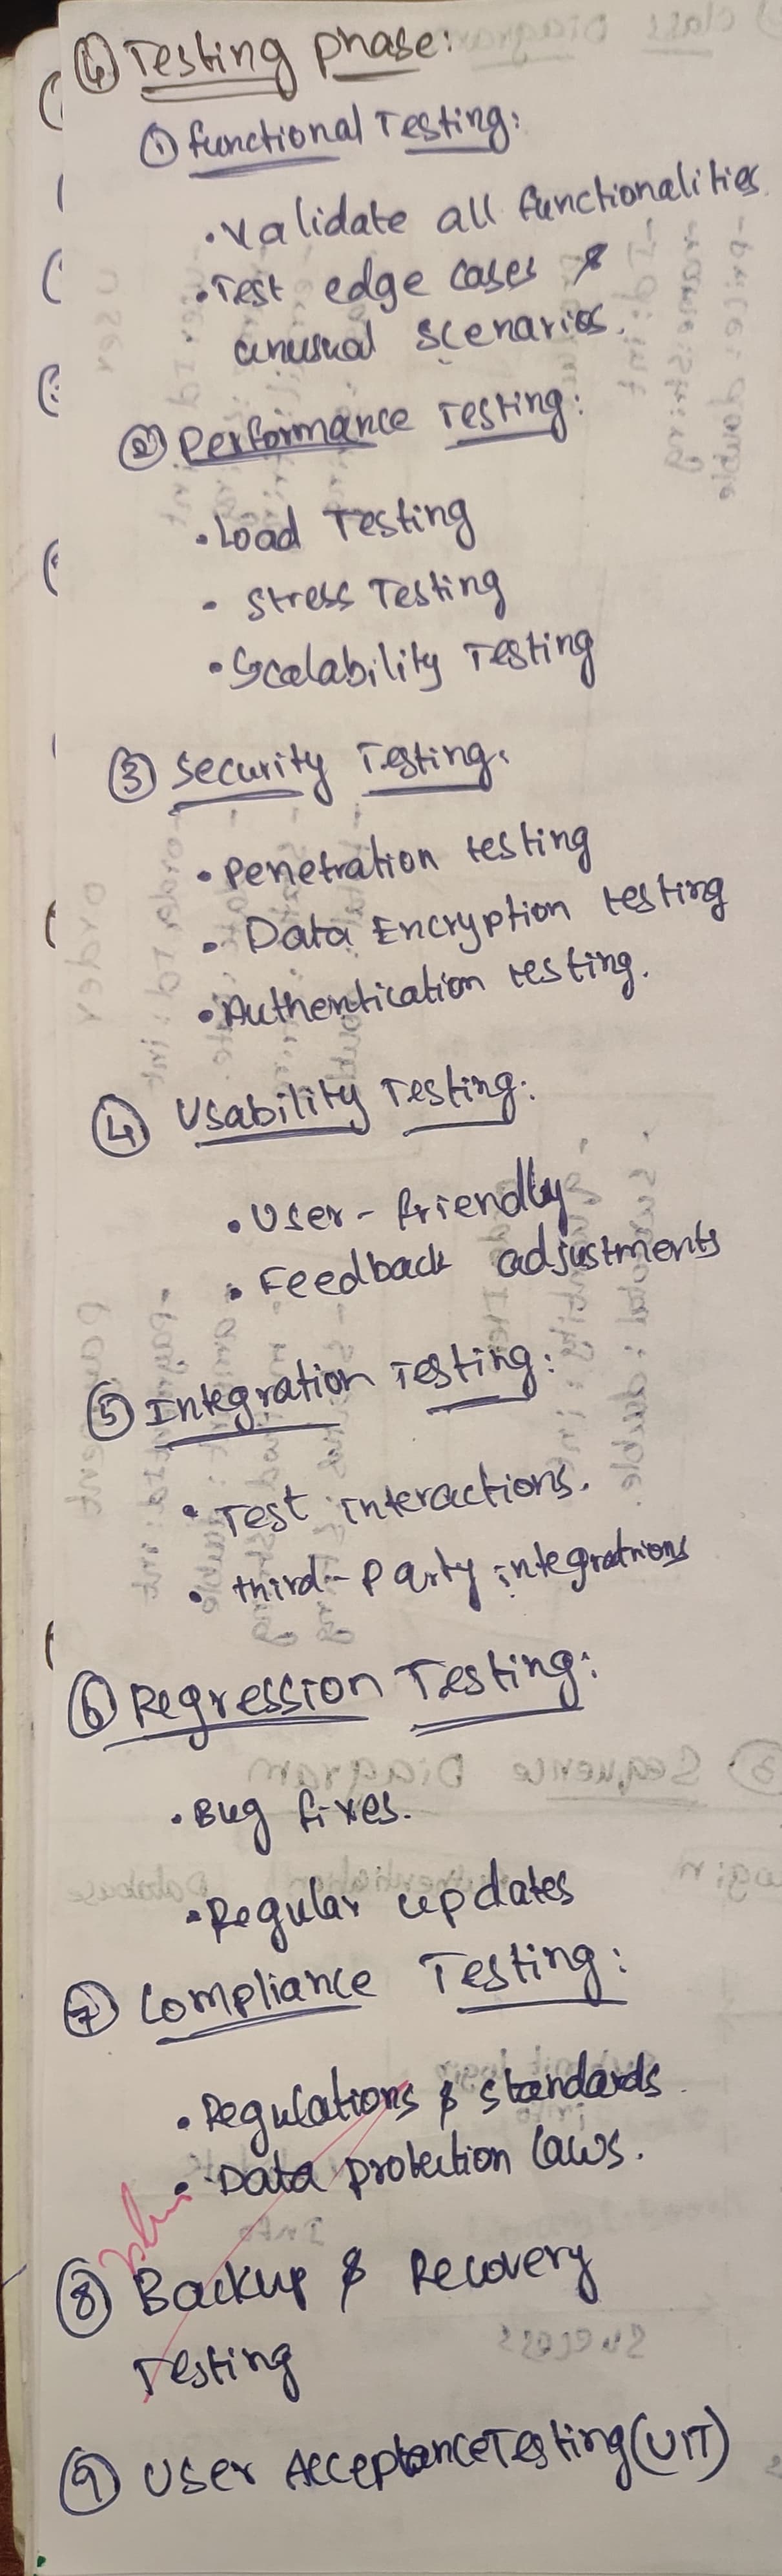 ④ Testing phase:
① functional Testing:
• Validate all functionalities
• Test edge cases &
unusual scenarios.
② Performance Testing:
• Load Testing
• Stress Testing
• Scalability Testing
③ Security Testing:
• Penetration testing
• Data Encryption testing
• Authentication testing.
④ Usability Testing:
• User-friendly
• Feedback adjustments
⑤ Integration Testing:
• Test interactions.
• third-party integrations
⑥ Regression Testing:
• Bug fixes.
• Regular updates
⑦ Compliance Testing:
• Regulations & standards
• Data protection laws.
⑧ Backup & Recovery
Testing
⑨ User Acceptance Testing (UIT)